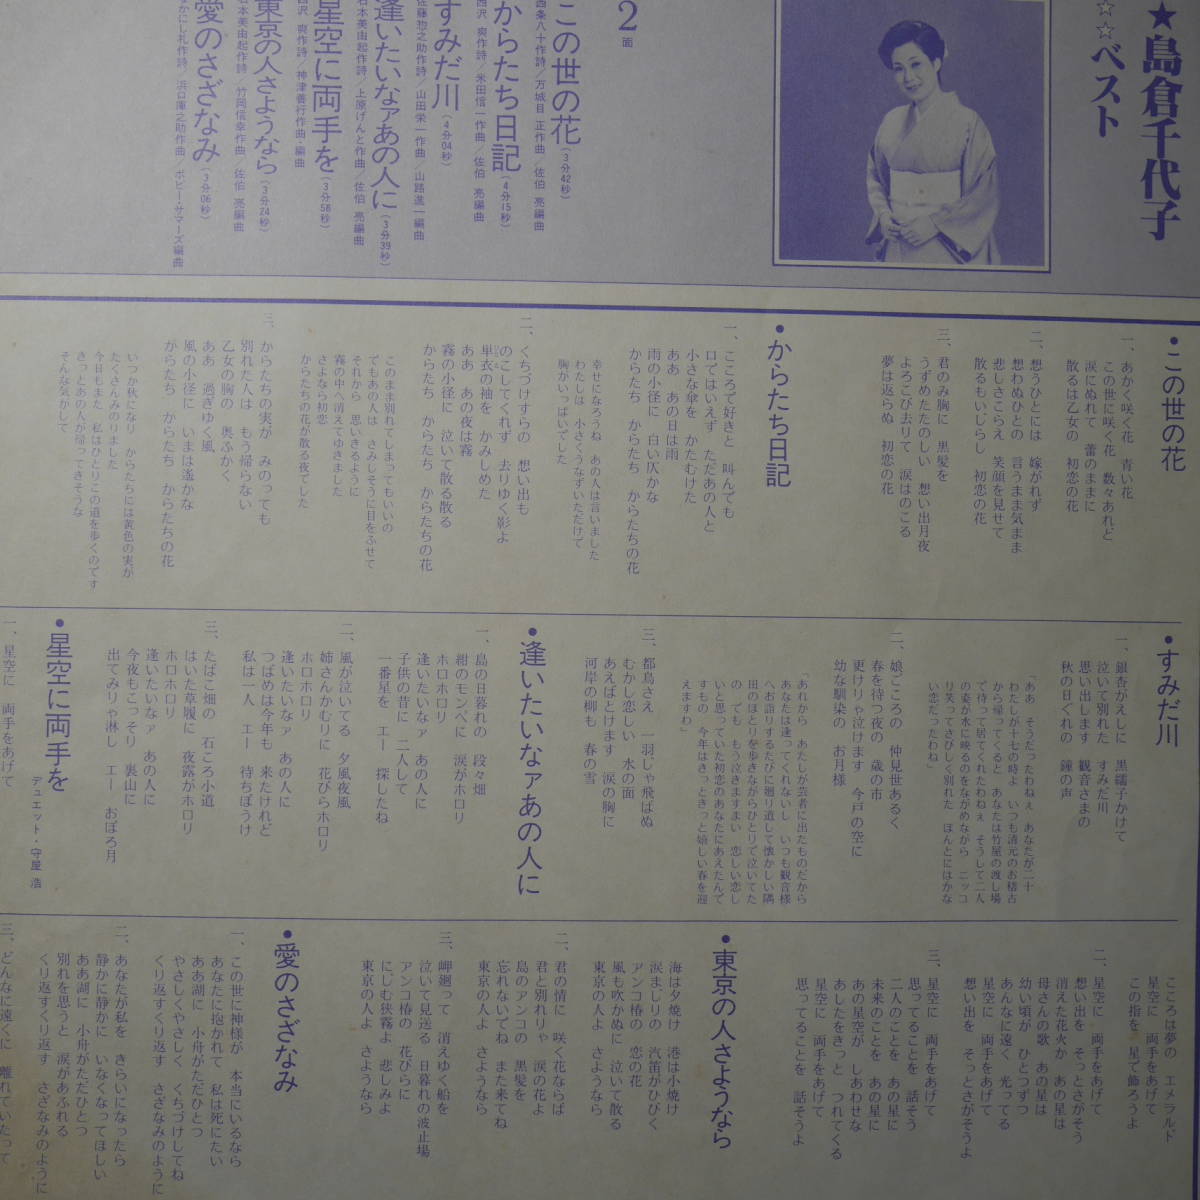 ★島倉千代子
☆☆ベスト
2面
この世の花(3分42秒)
西条八十作詩/万城目 正作曲/佐伯 亮編曲
からたち日記(4分15秒)
西沢 爽作詩/米田信一作曲/佐伯 亮編曲
すみだ川(4分04秒)
佐藤惣之助作詩/山田栄一作曲/山路進一編曲
逢いたいなァあの人に(3分39秒)
石本美由起作詩/上原げんと作曲/佐伯 亮編曲
星空に両手を(3分58秒)
西沢 爽作詩/神津善行作曲・編曲
東京の人さようなら(3分24秒)
石本美由起作詩/竹岡信幸作曲/佐伯 亮編曲
愛のさざなみ(3分06秒)
なかにし礼作詩/浜口庫之助作曲/ボビー・サマーズ編曲
●この世の花
一、あかく咲く花 青い花
この世に咲く花 数々あれど
涙にぬれて 蕾のままに
散るは乙女の 初恋の花
二、想うひとには 嫁がれず
想わぬひとの 言うまま気まま
悲しさこらえ 笑顔を見せて
散るもいじらし 初恋の花
三、君のみ胸に 黒髪を
うずめたたのしい 想い出月夜
よろこび去りて 涙はのこる
夢は返らぬ 初恋の花
●からたち日記
一、こころで好きと 叫んでも
口ではいえず ただあの人と
小さな傘を かたむけた
ああ あの日は雨
雨の小径に 白い仄かな
からたち からたち からたちの花
幸せになろうね あの人は言いました
わたしは 小さくうなずいただけで
胸がいっぱいでした
二、くちづけすらの 想い出も
のこしてくれず 去りゆく影よ
単衣の袖を かみしめた
ああ あの夜は霧
霧の小径に 泣いて散る散る
からたち からたち からたちの花
このまま別れてしまってもいいの
でもあの人は さみしそうに目をふせて
それから 思いきるように
霧の中へ消えてゆきました
さよなら初恋
からたちの花が散る夜でした
三、からたちの実が みのっても
別れた人は もう帰らない
乙女の胸の 奥ふかく
ああ 過ぎゆく風
風の小径に いまは遥かな
からたち からたち からたちの花
いつか秋になり からたちには黄色の実が
たくさんみのりました
今日もまた 私はひとりこの道を歩くのです
きっとあの人が帰ってきそうな
そんな気がして
●すみだ川
一、銀杏がえしに 黒繻子かけて
泣いて別れた すみだ川
思い出します 観音さまの
秋の日ぐれの 鐘の声
「ああ そうだったわねぇ あなたが二十
わたしが十七の時よ いつも清元のお稽古
から帰ってくると あなたは竹屋の渡し場
で待って居てくれたわねぇ そうして二人
の姿が水に映るのをながめながら ニッコ
リ笑ってさびしく別れた ほんとにはかな
い恋だったわね」
二、娘ごころの 仲見世あるく
春を待つ夜の 歳の市
更けりゃ泣けます 今戸の空に
幼な馴染の お月様
「あれから あたしが芸者に出たものだから
あなたは逢ってくれないし いつも観音様
へお詣りするたびに廻り道して懐かしい隅
田のほとりを歩きながらひとりで泣いてた
の でも もう泣きますまい 恋しい恋し
いと思っていた初恋のあなたにあえたんで
すもの 今年はきっときっと嬉しい春を迎
えますわ」
三、都鳥さえ 一羽じゃ飛ばぬ
むかし恋しい 水の面
あえばとけます 涙の胸に
河岸の柳も 春の雪
●逢いたいなァあの人に
一、島の日暮れの 段々畑
紺のモンペに 涙がホロリ
ホロホロリ
逢いたいなァ あの人に
子供の昔に 二人して
一番星を エー 探したね
二、風が泣いてる 夕風夜風
姉さんかむりに 花びらホロリ
ホロホロリ
逢いたいなァ あの人に
つばめは今年も 来たけれど
私は一人 エー 待ちぼうけ
三、たばこ畑の 石ころ小道
はいた草履に 夜露がホロリ
ホロホロリ
逢いたいなァ あの人に
今夜もこっそり 裏山に
出てみりゃ淋し エー おぼろ月
●星空に両手を
デュエット・守屋 浩
一、星空に 両手をあげて
こころは夢の エメラルド
星空に 両手をあげて
この指を 星で飾ろうよ
二、星空に 両手をあげて
想い出を そっとさがそう
消えた花火か あの星は
母さんの歌 あの星は
幼い頃が ひとつずつ
あんなに遠く 光ってる
星空に 両手をあげて
想い出を そっとさがそうよ
三、星空に 両手をあげて
思ってることを 話そう
二人のことを あの星に
未来のことを あの星に
あの星空が しあわせな
あしたをきっと つれてくる
星空に 両手をあげて
思ってることを 話そうよ
●東京の人さようなら
海は夕焼け 港は小焼け
涙まじりの 汽笛がひびく
アンコ椿の 恋の花
風も吹かぬに 泣いて散る
東京の人よ さようなら
二、君の情に 咲く花ならば
君と別れりゃ 涙の花よ
島のアンコの 黒髪を
忘れないでね また来てね
東京の人よ さようなら
三、岬廻って 消えゆく船を
泣いて見送る 日暮れの波止場
アンコ椿の 花びらに
にじむ狭霧よ 悲しみよ
東京の人よ さようなら
●愛のさざなみ
一、この世に神様が 本当にいるなら
あなたに抱かれて 私は死にたい
ああ湖に 小舟がただひとつ
やさしくやさしく くちづけしてね
くり返すくり返す さざなみのように
二、あなたが私を きらいになったら
静かに静かに いなくなってほしい
ああ湖に 小舟がただひとつ
別れを思うと 涙があふれる
くり返すくり返す さざなみのように
三、どんなに遠くに 離れていたって